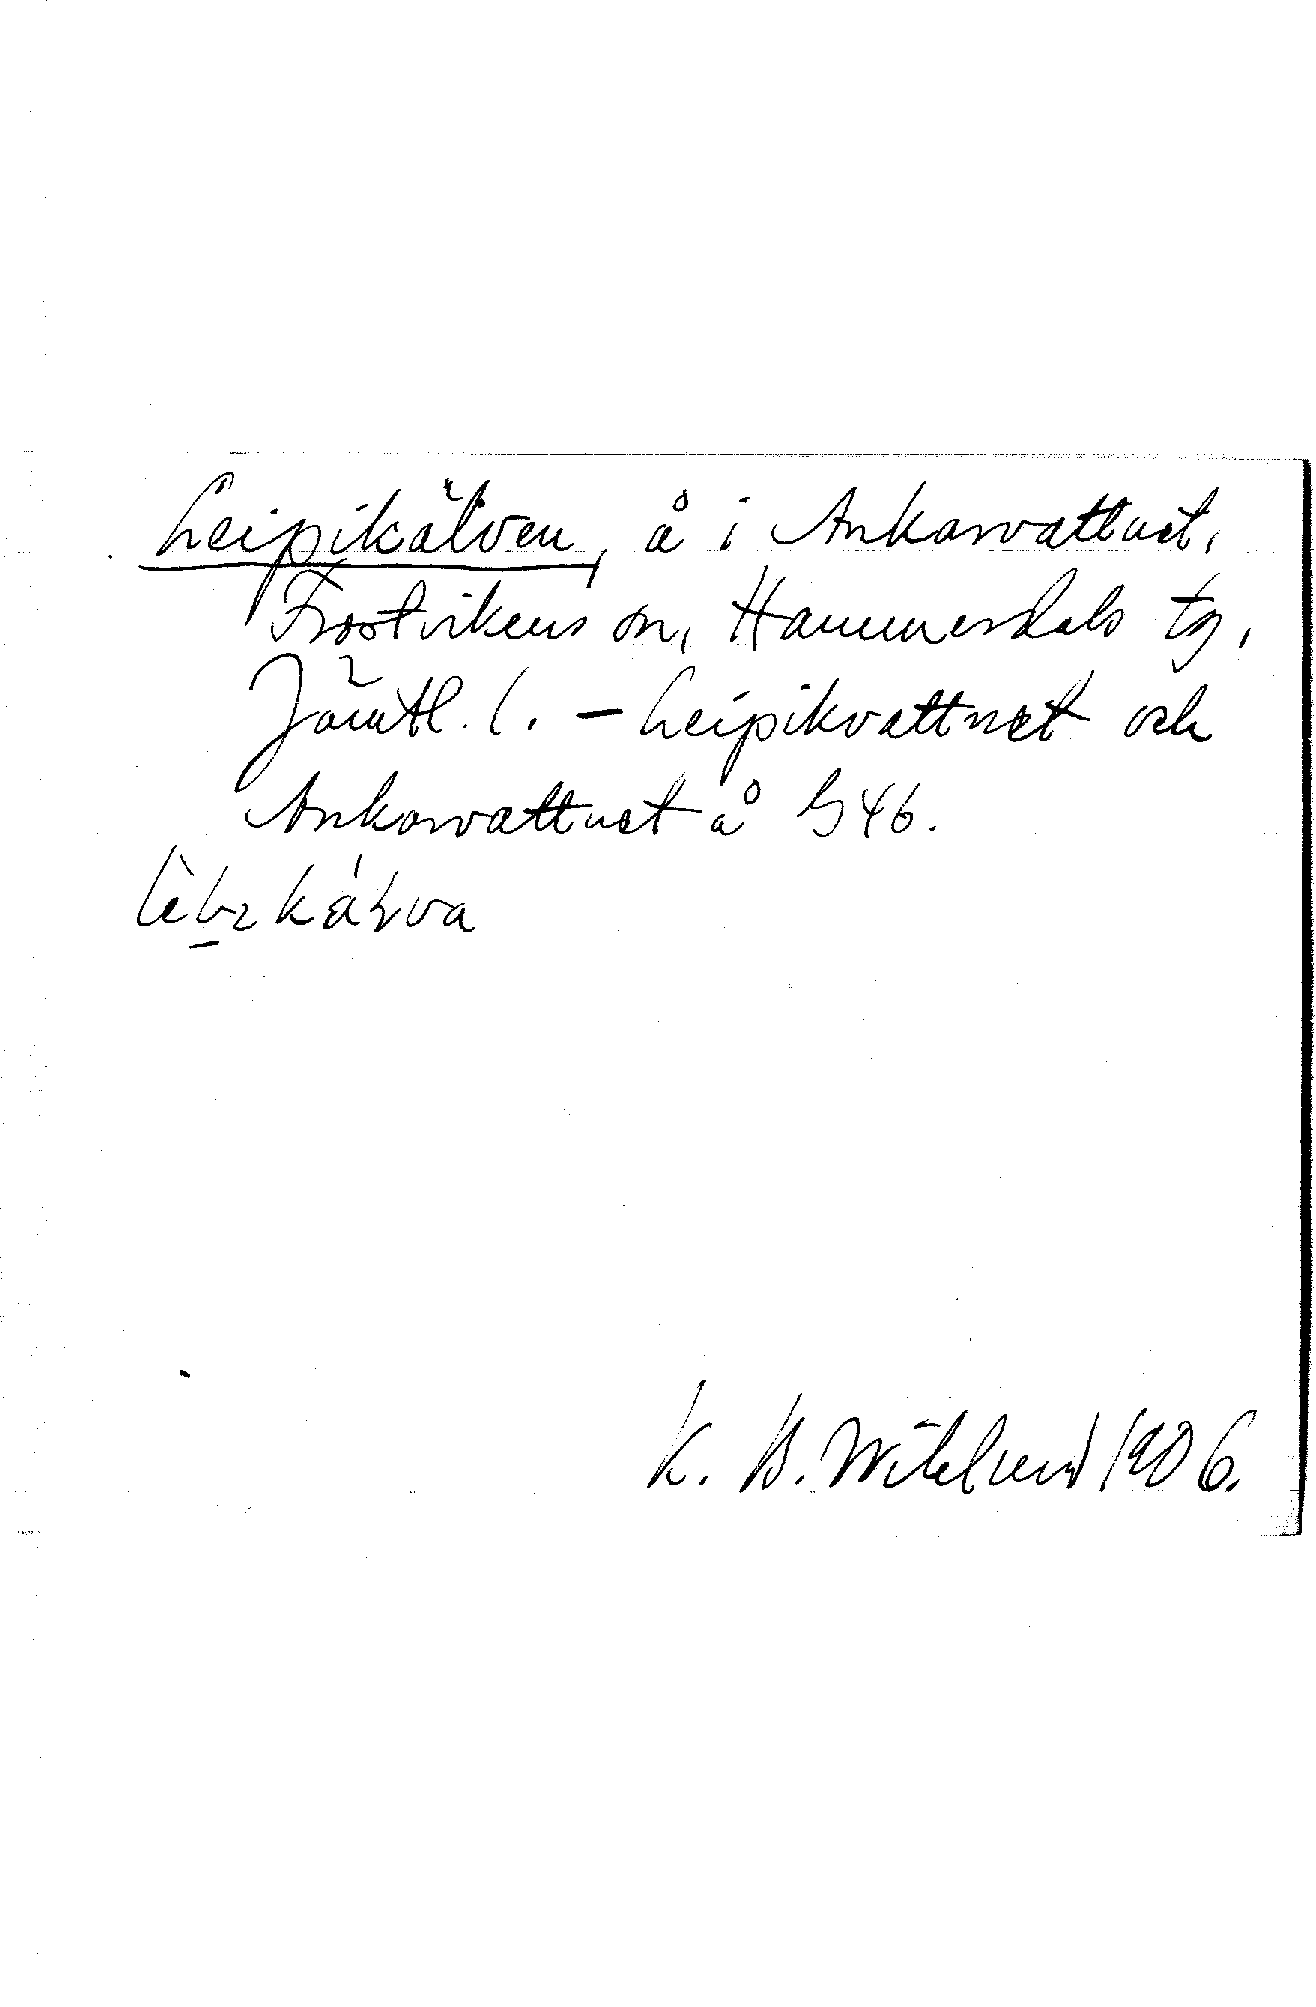 Leipikälven, å i Ankarvattnet,
Frostvikens sn, Hammerdals tg,
Jämtl. l. – Leipikvattnet och
Ankarvattnet å G 46.
K. B. Wiklund 1906.